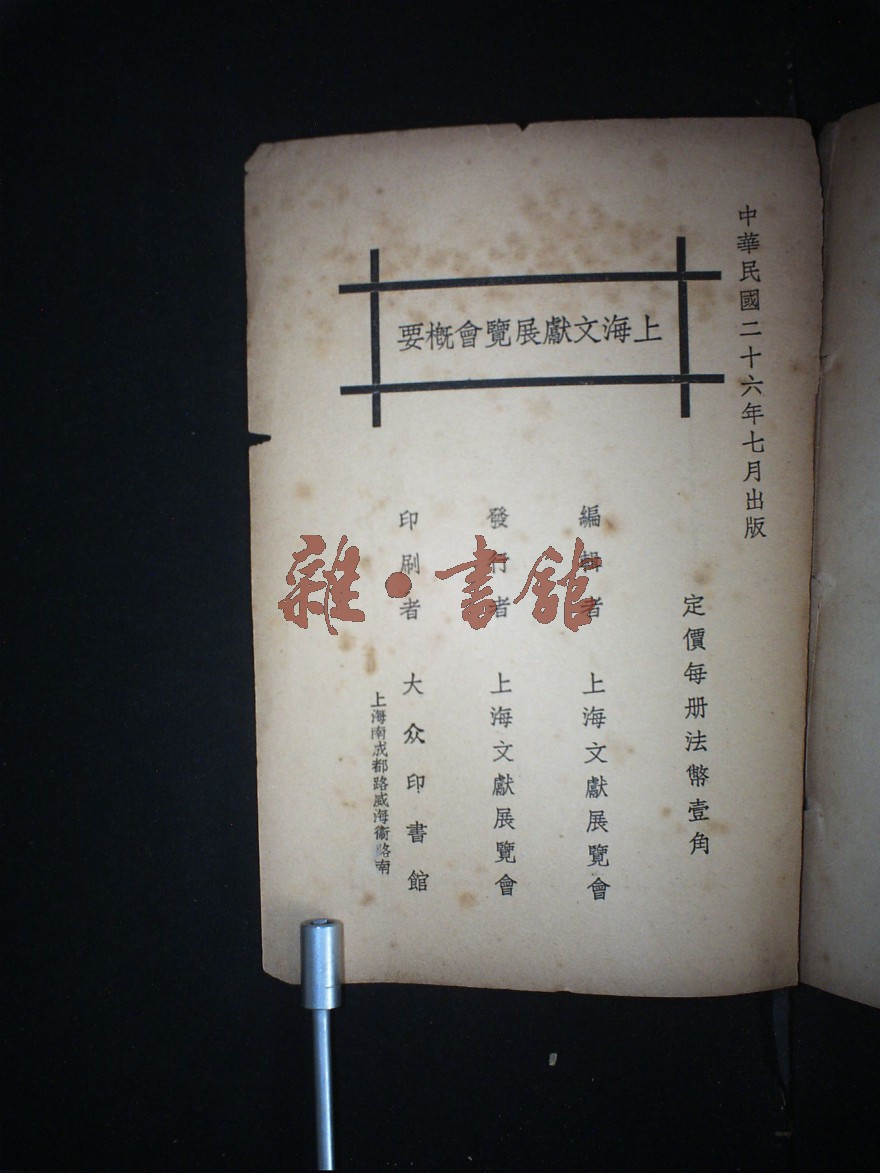 中華民國二十六年七月出版
上海文獻展覽會概要
定價每册法幣壹角
編輯者 上海文獻展覽會
發行者 上海文獻展覽會
印刷者 大众印書館
上海南成都路威海衞路南
雜·書館